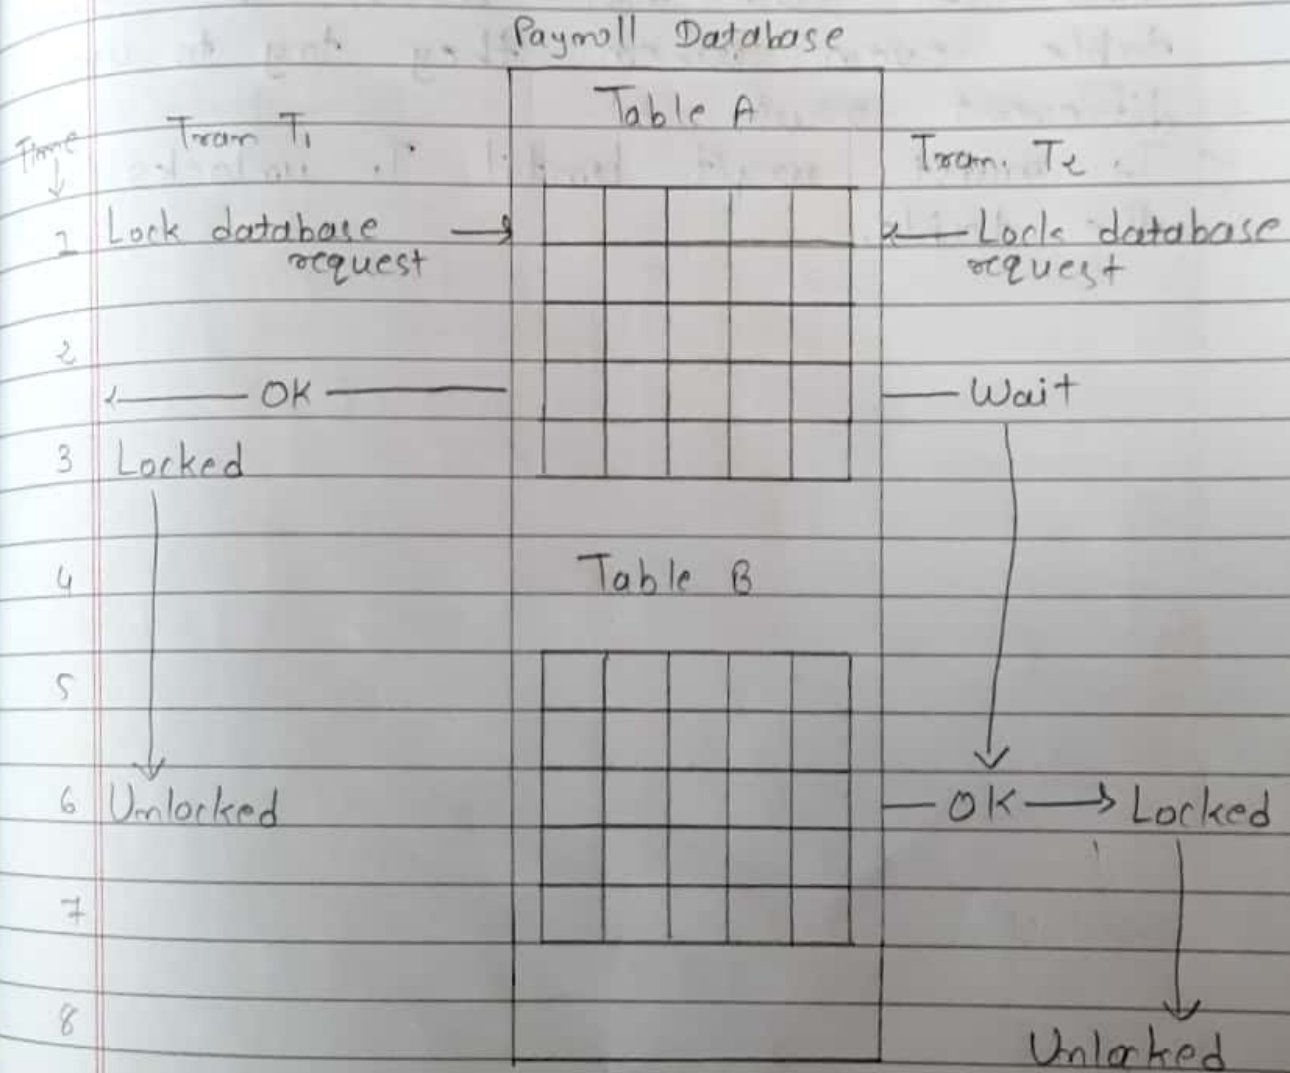 Payroll Database
Table A
Time
Tran T1
Tran. T2
1 Lock database request
Lock database request
2
OK
Wait
3 Locked
4
Table B
5
6 Unlocked
OK
Locked
7
8
Unlocked